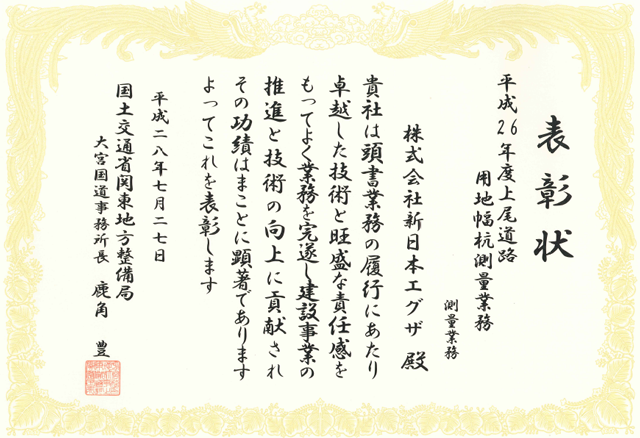 表彰状
平成26年度上尾道路
用地幅杭測量業務
測量業務
株式会社新日本エグザ 殿
貴社は頭書業務の履行にあたり
卓越した技術と旺盛な責任感を
もってよく業務を完遂し建設事業の
推進と技術の向上に貢献され
その功績はまことに顕著であります
よってこれを表彰します
平成二八年七月二七日
国土交通省関東地方整備局
大宮国道事務所長 鹿角 豊